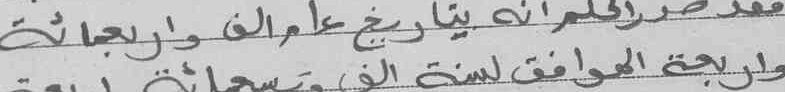 فقد صدر الحكم انه بتاريخ عام الف واربعمائة
واربعة الموافق لسنة الف وتسعمائة اربعة